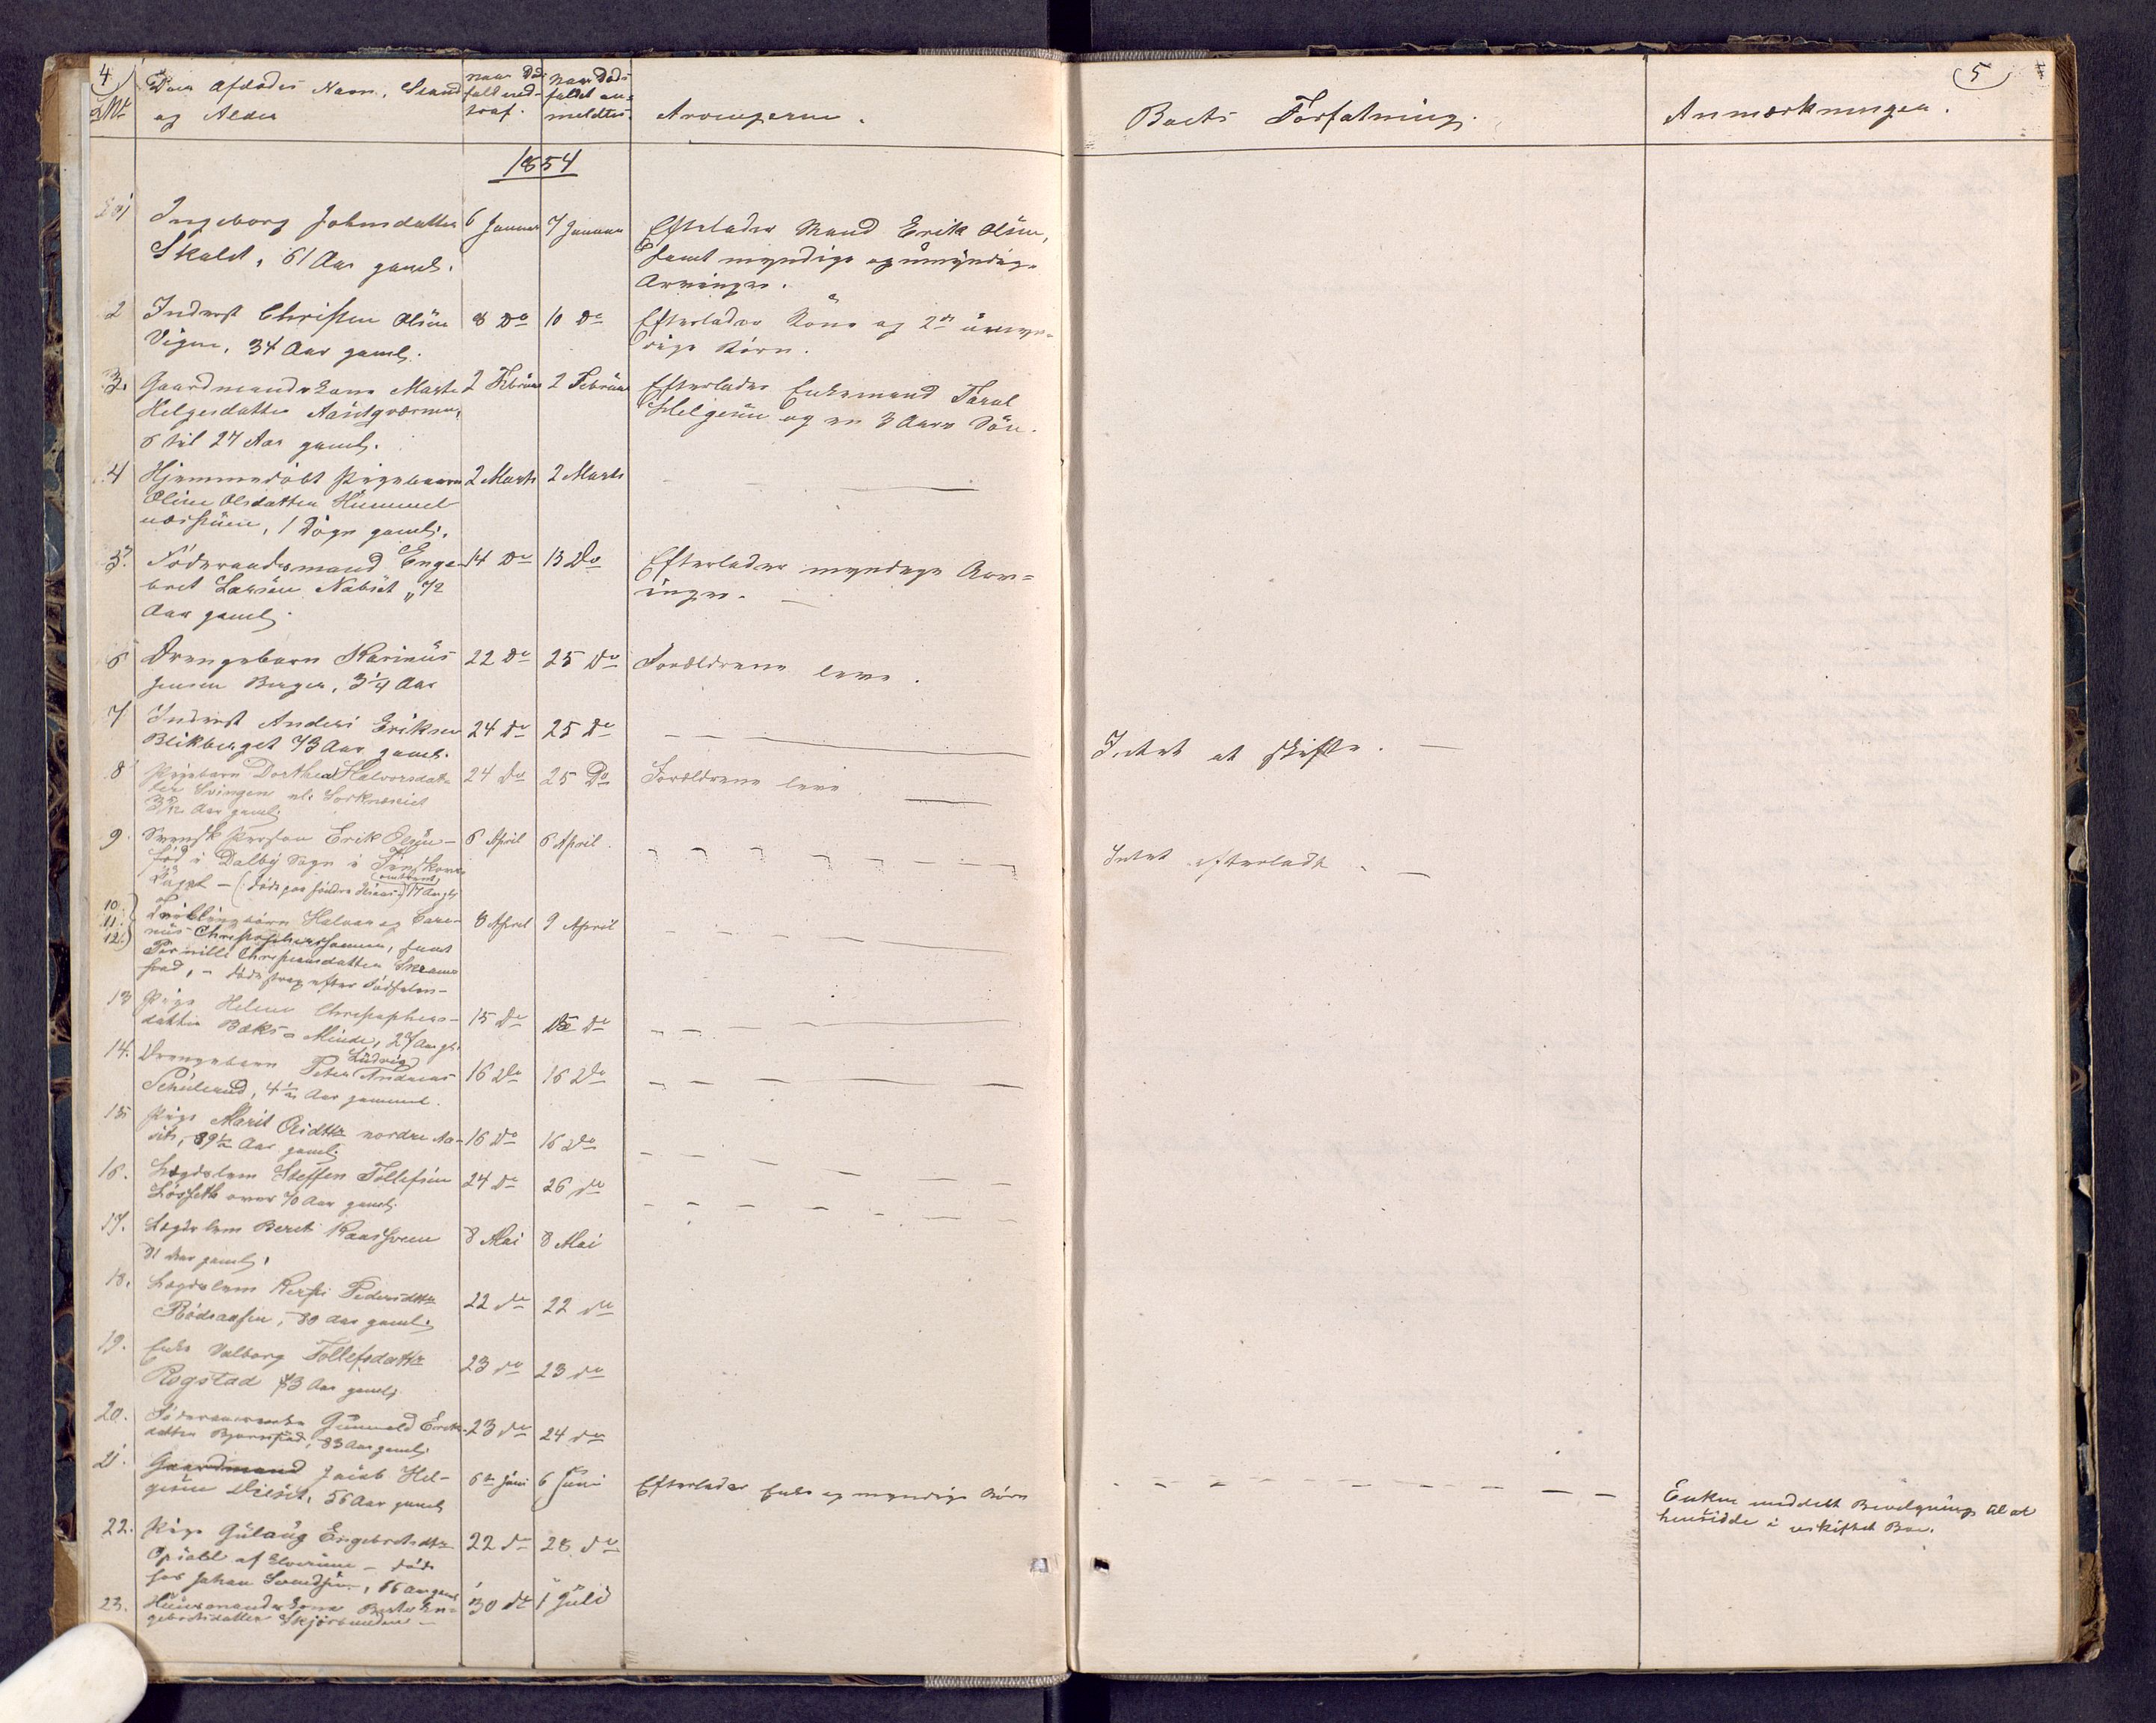 4
5
No
Den Afdødes Navn, Stand
og Alder
Naar Døds
faldet ind-
traf.
Naar Døds
faldet an-
meldtes.
Arvingerne.
Boets Forfatning.
Anmærkninger.
1854
1
Ingeborg Johnsdatter
Skulst, 61 Aar gaml.
6 Januar
7 Januar
Efterlader Mand Erik Olsen,
samt myndige og umyndige
Arvinger.
2
Inderst Christen Olsen
Vigen, 34 Aar gaml.
8 Do
10 Do
Efterlader Kone og 2de umyn-
dige Børn.
3.
Gaardmandskone Marte
Helgesdatter
6 til 27 Aar gaml.
2 Februar
2 Februar
Efterlader Enkemand Taral
Helgesen og en 3 Aars Søn.
4
Hjemmedøbt Pigebarn
Oline Olsdatter Hummel
, 1 Døgn gaml.
2 Marts
2 Marts
5.
Föderaadsmand Enge-
bret Larsen Nabset, 72
Aar gaml.
14 Do
13 Do
Efterlader myndige Arv-
inger.
6
Drengebarn Karinus
Jensen Berger, 3 1/4 Aar
22 Do
25 Do
Forældrene leve.
7
Inderst Anders Eriksen
Blikberget 73 Aar gaml.
24 Do
25 Do
Intet at skifte.
8
Pigebarn Dorthea Halvorsdat-
ter Svingen
Aar gaml.
24 Do
25 Do
Forældrene leve.
9.
Svensk Person Erik Olsen
fød i Dalby Sogn i
omtrent
17 Aar gl.
6 April
6 April.
Intet efterladt.
10.
11.
12.
Trillingbørn Halvor og Cari-
nus Christophersønner, samt
Pernille Christiansdatter
, - døde strax efter Fødselen -
8 April
9 April
13
Pige Helene Christophers-
datter Bæks-Minde, 27 Aar gl.
15 Do
Do
14.
Drengebarn Peter Andreas
Ludvig
Schulerud, 4 1/2 Aar gammel.
16 Do
16 Do
15
Pige Marit nordre
, 89 1/2 Aar gaml.
16 Do
16 Do
16.
Lægdslem Steffen Tollefsen
Løsseth over 70 Aar gaml.
24 Do
26 do
17.
Lægdslem Berit
81 Aar gaml.
8 Mai
8 Mai
18.
Lægdslem Kersti Pedersdtr
, 80 Aar gaml.
22 do
22 do
19.
Enke Valborg Tollefsdatter
Rogstad 73 Aar gaml.
23 do
23 do
20.
Föderaadsenke Gunnild Eriks-
datter Bjørnstad, 83 Aar gaml.
23 do
24 do
21.
Gaardmand Jacob Hel-
gesen Diesit, 56 Aar gaml.
6te Juni
6 Juni
Efterlader Enke og myndige Børn
Enken meddelt Bevilgning til at
hensidde i uskiftet Bo.
22.
Pige Gulaug Engebretsdtr
Opsahl af Elverum - død
hos Johan Svendsen, 66 Aar gaml.
22 do
28 do
23.
Huusmandskone Berte En-
gebretsdatter
30 do
1 Juli